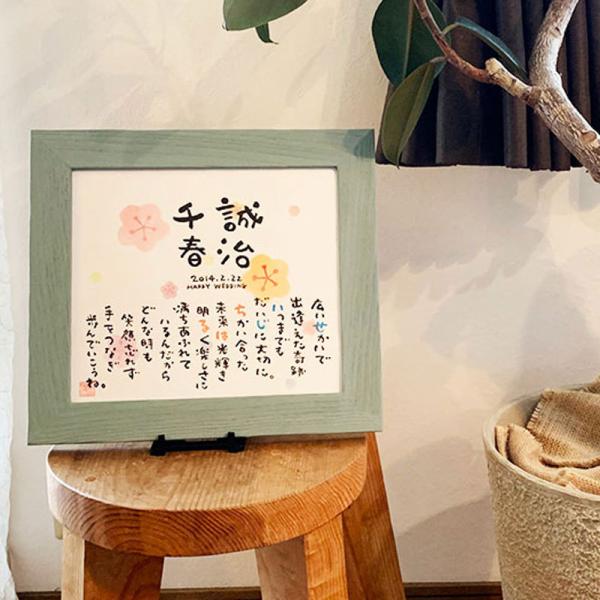 誠治
千春
2014.2.22
HAPPY WEDDING
広いせかいで
出逢えた奇跡
いつまでも
だいじに大切に。
ちかい合った
未来は光輝き
明るく楽しさに
満ちあふれて
いるんだから
どんな時も
笑顔忘れず
手をつなぎ
歩んでいこうね。